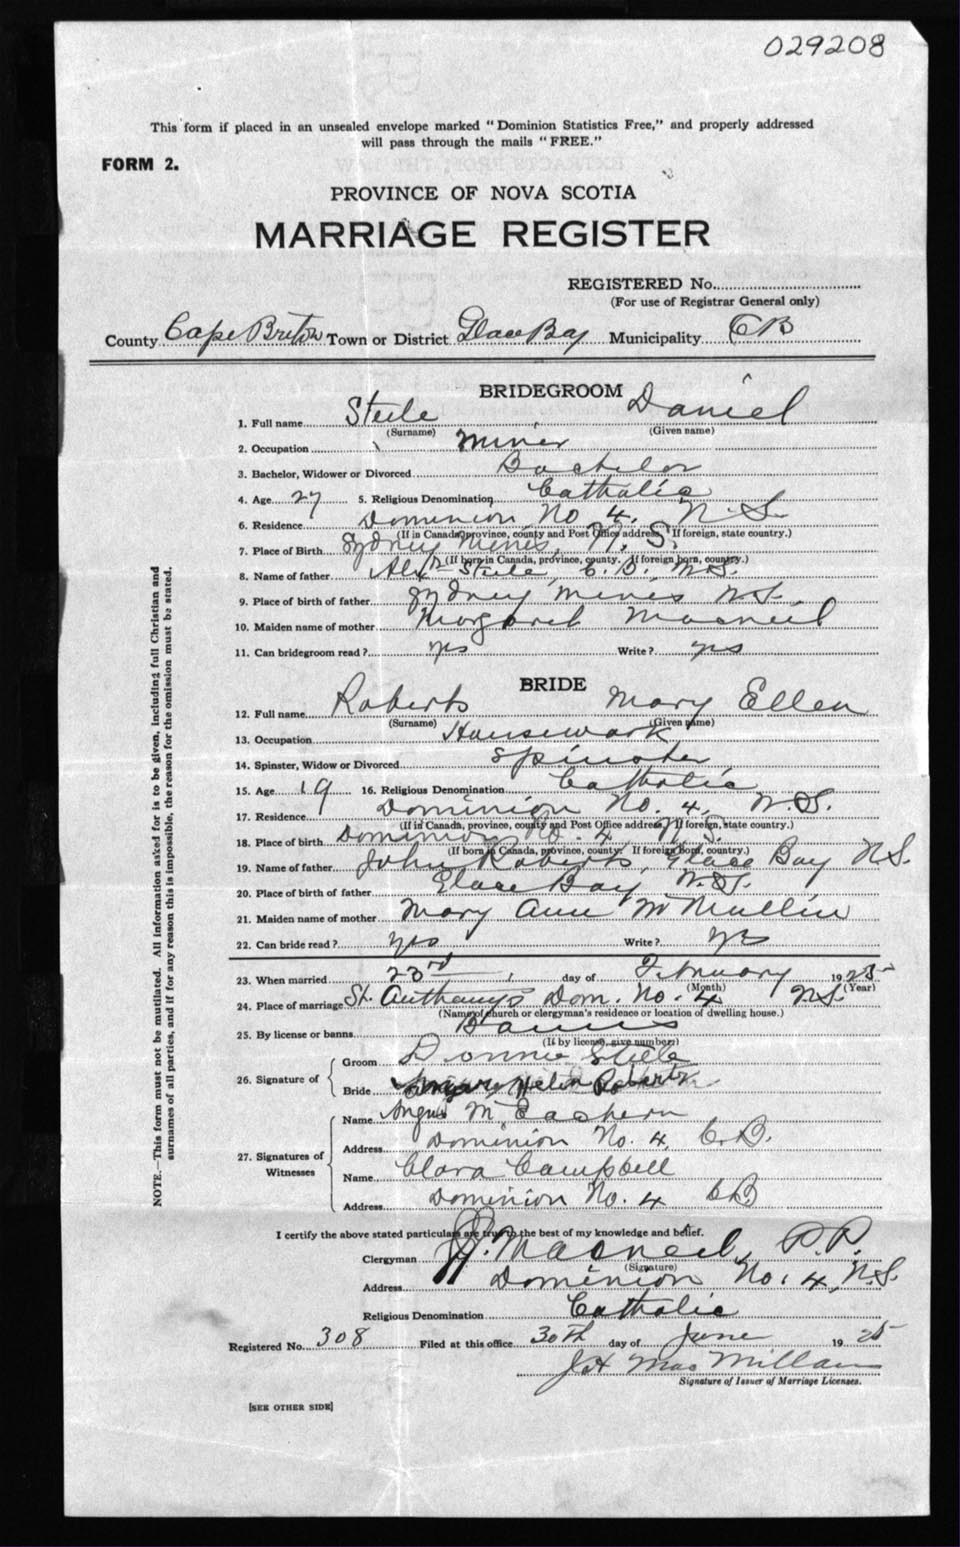 029208
This form if placed in an unsealed envelope marked "Dominion Statistics Free," and properly addressed
will pass through the mails "FREE."
FORM 2.
PROVINCE OF NOVA SCOTIA
MARRIAGE REGISTER
REGISTERED No.
(For use of Registrar General only)
County Cape Breton Town or District Glace Bay Municipality CB
BRIDEGROOM
1. Full name Steele Daniel
(Surname) (Given name)
2. Occupation Miner
3. Bachelor, Widower or Divorced Bachelor
4. Age 27 5. Religious Denomination Catholic
6. Residence Dominion No 4, N.S.
(If in Canada, province, county and Post Office address, If foreign, state country.)
7. Place of Birth Sydney Mines, N.S.
(If born in Canada, province, county. If foreign born, country.)
8. Name of father Alex Steele, C.B., N.S.
9. Place of birth of father Sydney Mines N.S.
10. Maiden name of mother Margaret Macneil
11. Can bridegroom read? yes Write? yes
BRIDE
12. Full name Roberts Mary Ellen
(Surname) (Given name)
13. Occupation Housework
14. Spinster, Widow or Divorced Spinster
15. Age 19 16. Religious Denomination Catholic
17. Residence Dominion No. 4, N.S.
(If in Canada, province, county and Post Office address, If foreign, state country.)
18. Place of birth Dominion No. 4 N.S.
(If born in Canada, province, county. If foreign born, country.)
19. Name of father John Roberts, Glace Bay N.S.
20. Place of birth of father Glace Bay N.S.
21. Maiden name of mother Mary Ann McMullin
22. Can bride read? yes Write? yes
23. When married 23rd day of February 1925
(Month) (Year)
24. Place of marriage St. Anthony's Dom. No. 4 N.S.
(Name of church or clergyman's residence or location of dwelling house.)
25. By license or banns Banns
(If by license, give number)
26. Signature of Groom Donnie Steele
Bride Mary Helen Roberts
27. Signatures of Witnesses
Name Angus McEachern
Address Dominion No. 4, C.B.
Name Clara Campbell
Address Dominion No. 4 CB
I certify the above stated particulars are true to the best of my knowledge and belief.
Clergyman Macneil, P.P.
(Signature)
Address Dominion No. 4, N.S.
Religious Denomination Catholic
Registered No. 308 Filed at this office 30th day of June 1925
J H MacMillan
Signature of Issuer of Marriage Licenses.
[SEE OTHER SIDE]
NOTE.—This form must not be mutilated. All information asked for is to be given, including full Christian and
surnames of all parties, and if for any reason this is impossible, the reason for the omission must be stated.